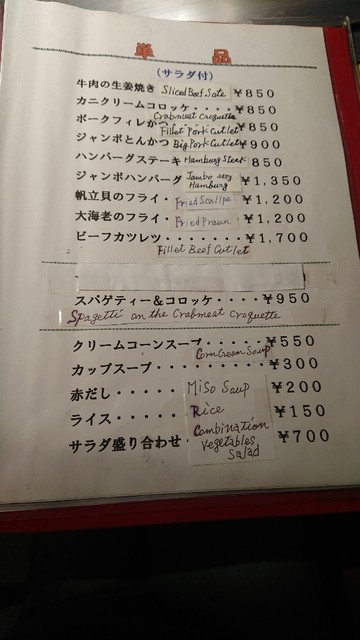 単 品
(サラダ付)
牛肉の生姜焼き Sliced Beef Sate ¥850
カニクリームコロッケ・・・・¥850
Crabmeat Croquette
ポークフィレかつ・・・・¥850
Fillet Pork Cutlet
ジャンボとんかつ Big Pork Cutlet ¥900
ハンバーグステーキ Hamburg Steak 850
ジャンボハンバーグ Jambo Hamburg ¥1,350
帆立貝のフライ・ Fried Scallpe ¥1,200
大海老のフライ・ Fried Praun ¥1,200
ビーフカツレツ・・・・・・・¥1,700
Fillet Beef Cutlet
スパゲティー&コロッケ・・・・¥950
Spagetti on the Crabmeat Croquette
クリームコーンスープ・・・・¥550
Corn Cream Soup
カップスープ・・・・・・・・・¥300
赤だし・・・・・ Miso Soup ¥200
ライス・・・・・ Rice ¥150
サラダ盛り合わせ・ Combination Vegetables Salad ¥700